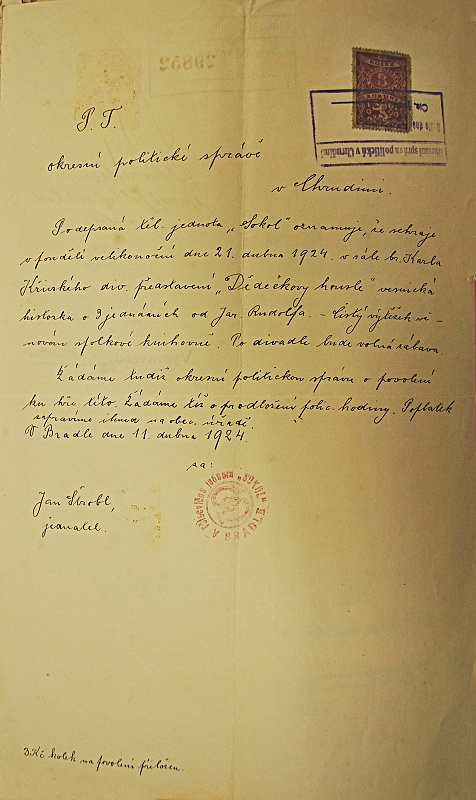 29892
KOLEK
3
Okresní správa politická v Chrudimi
P. T.
okresní politické správě
v Chrudimi.
Podepsaná těl. jednota „Sokol" oznamuje, že sehraje
v pondělí velikonoční dne 21. dubna 1924 v sále br. Karla
Křinského div. představení „Dědečkovy housle" vesnická
historka o 3 jednáních od Jar. Rudolfa. – Čistý výtěžek vě-
nován spolkové knihovně. Po divadle bude volná zábava.
Žádáme tudíž okresní politickou správu o povolení
ku hře této. Žádáme též o prodloužení polic. hodiny. Poplatek
zapravíme ihned na obec. úřadě.
V Bradle dne 11. dubna 1924.
za:
Jan Štrobl,
jednatel.
TĚLOCVIČNÁ JEDNOTA „SOKOL"
3 Kč kolek na povolení přiložen.